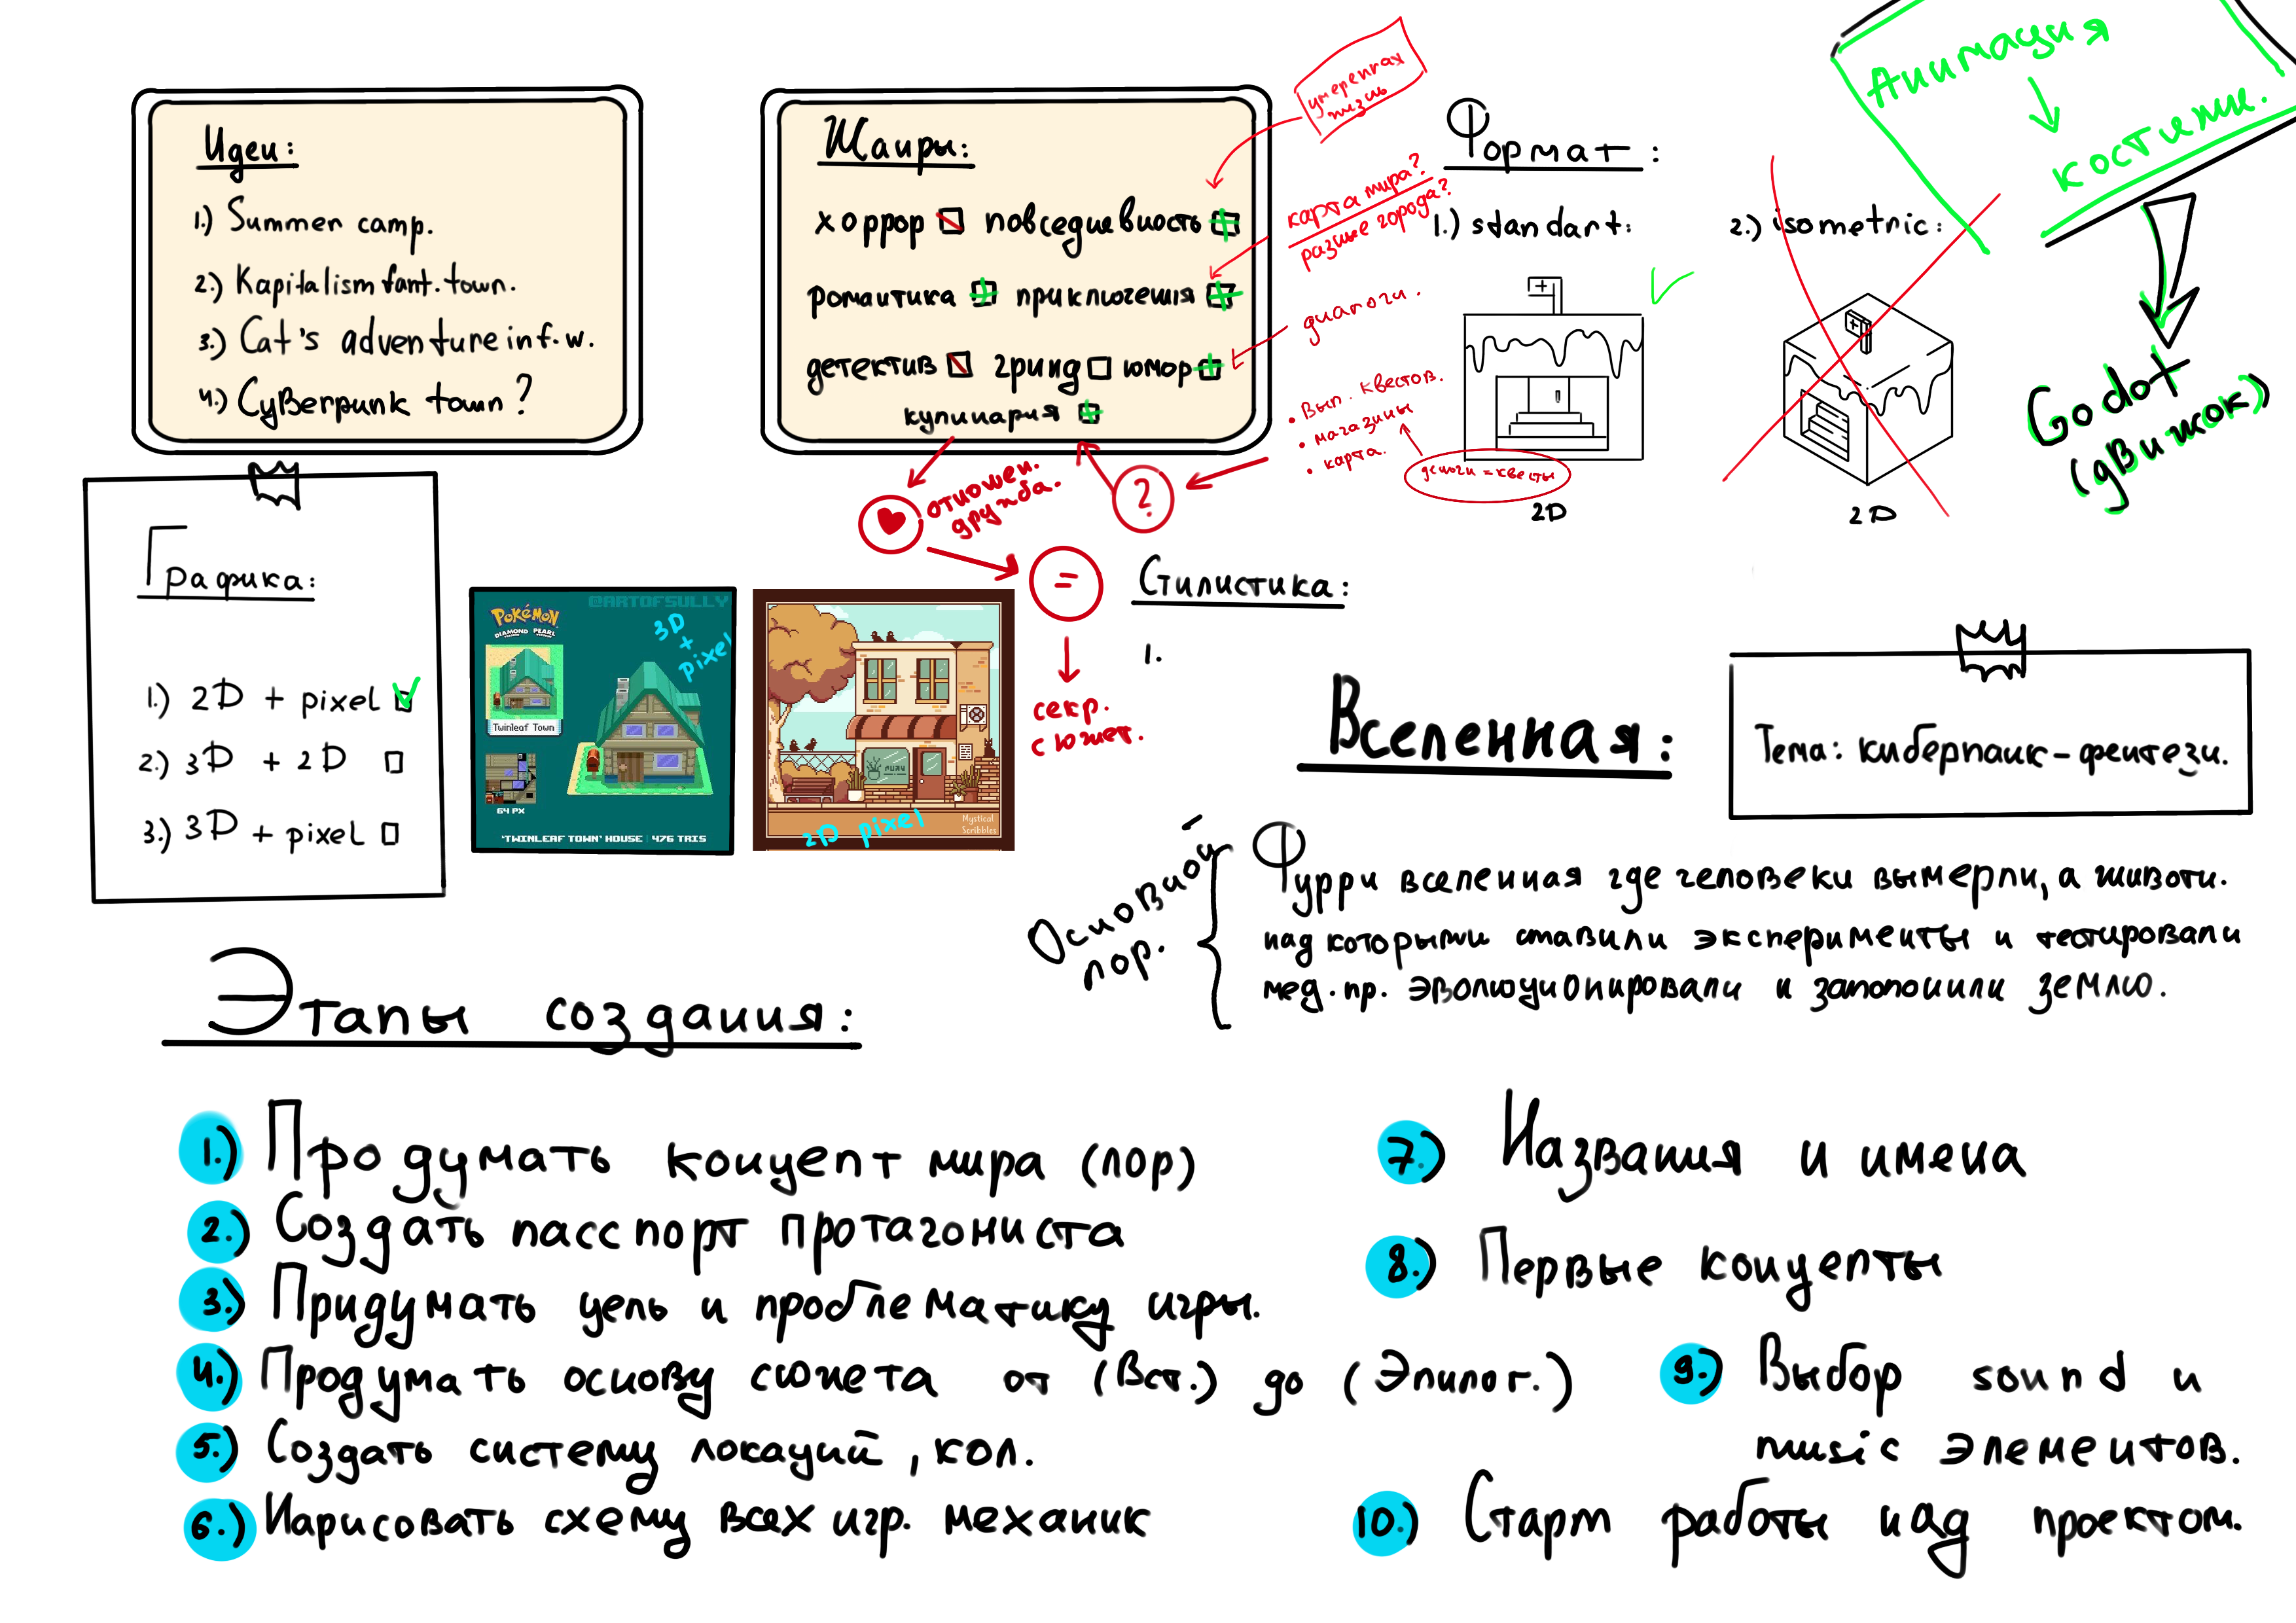 Идеи:
1.) Summer camp.
2.) Kapitalism fant. town.
3.) Cat's adventure in f.w.
4.) Cyberpunk town?
Жанры:
хоррор повседневность
романтика приключения
детектив гринд юмор
кулинария
умеренная
жизнь
карта мира?
разные города?
диалоги.
• Вып. квестов.
• магазины
• карта.
деньги = квесты
отношен.
дружба.
?
=
секр.
сюжет.
Формат:
1.) standart:
2D
2.) isometric:
2D
Анимация
костюмы.
Godot
(движок)
Графика:
1.) 2D + pixel
2.) 3D + 2D
3.) 3D + pixel
@ARTOFSULLY
POKéMON
DIAMOND PEARL
3D
+
pixel
Twinleaf Town
64 PX
'TWINLEAF TOWN' HOUSE | 476 TRIS
2D pixel
Mystical
Scribbles
Стилистика:
1.
Вселенная:
Тема: киберпанк-фентези.
Основной
лор.
Фурри вселенная где человеки вымерли, а животн.
над которыми ставили эксперименты и тестировали
мед. пр. эволюционировали и заполонили землю.
Этапы создания:
1.) Продумать концепт мира (лор)
2.) Создать пасспорт протагониста
3.) Придумать цель и проблематику игры.
4.) Продумать основу сюжета от (Вст.) до (Эпилог.)
5.) Создать систему локаций, кол.
6.) Нарисовать схему всех игр. механик
7.) Названия и имена
8.) Первые концепты
9.) Выбор sound и
music элементов.
10.) Старт работы над проектом.